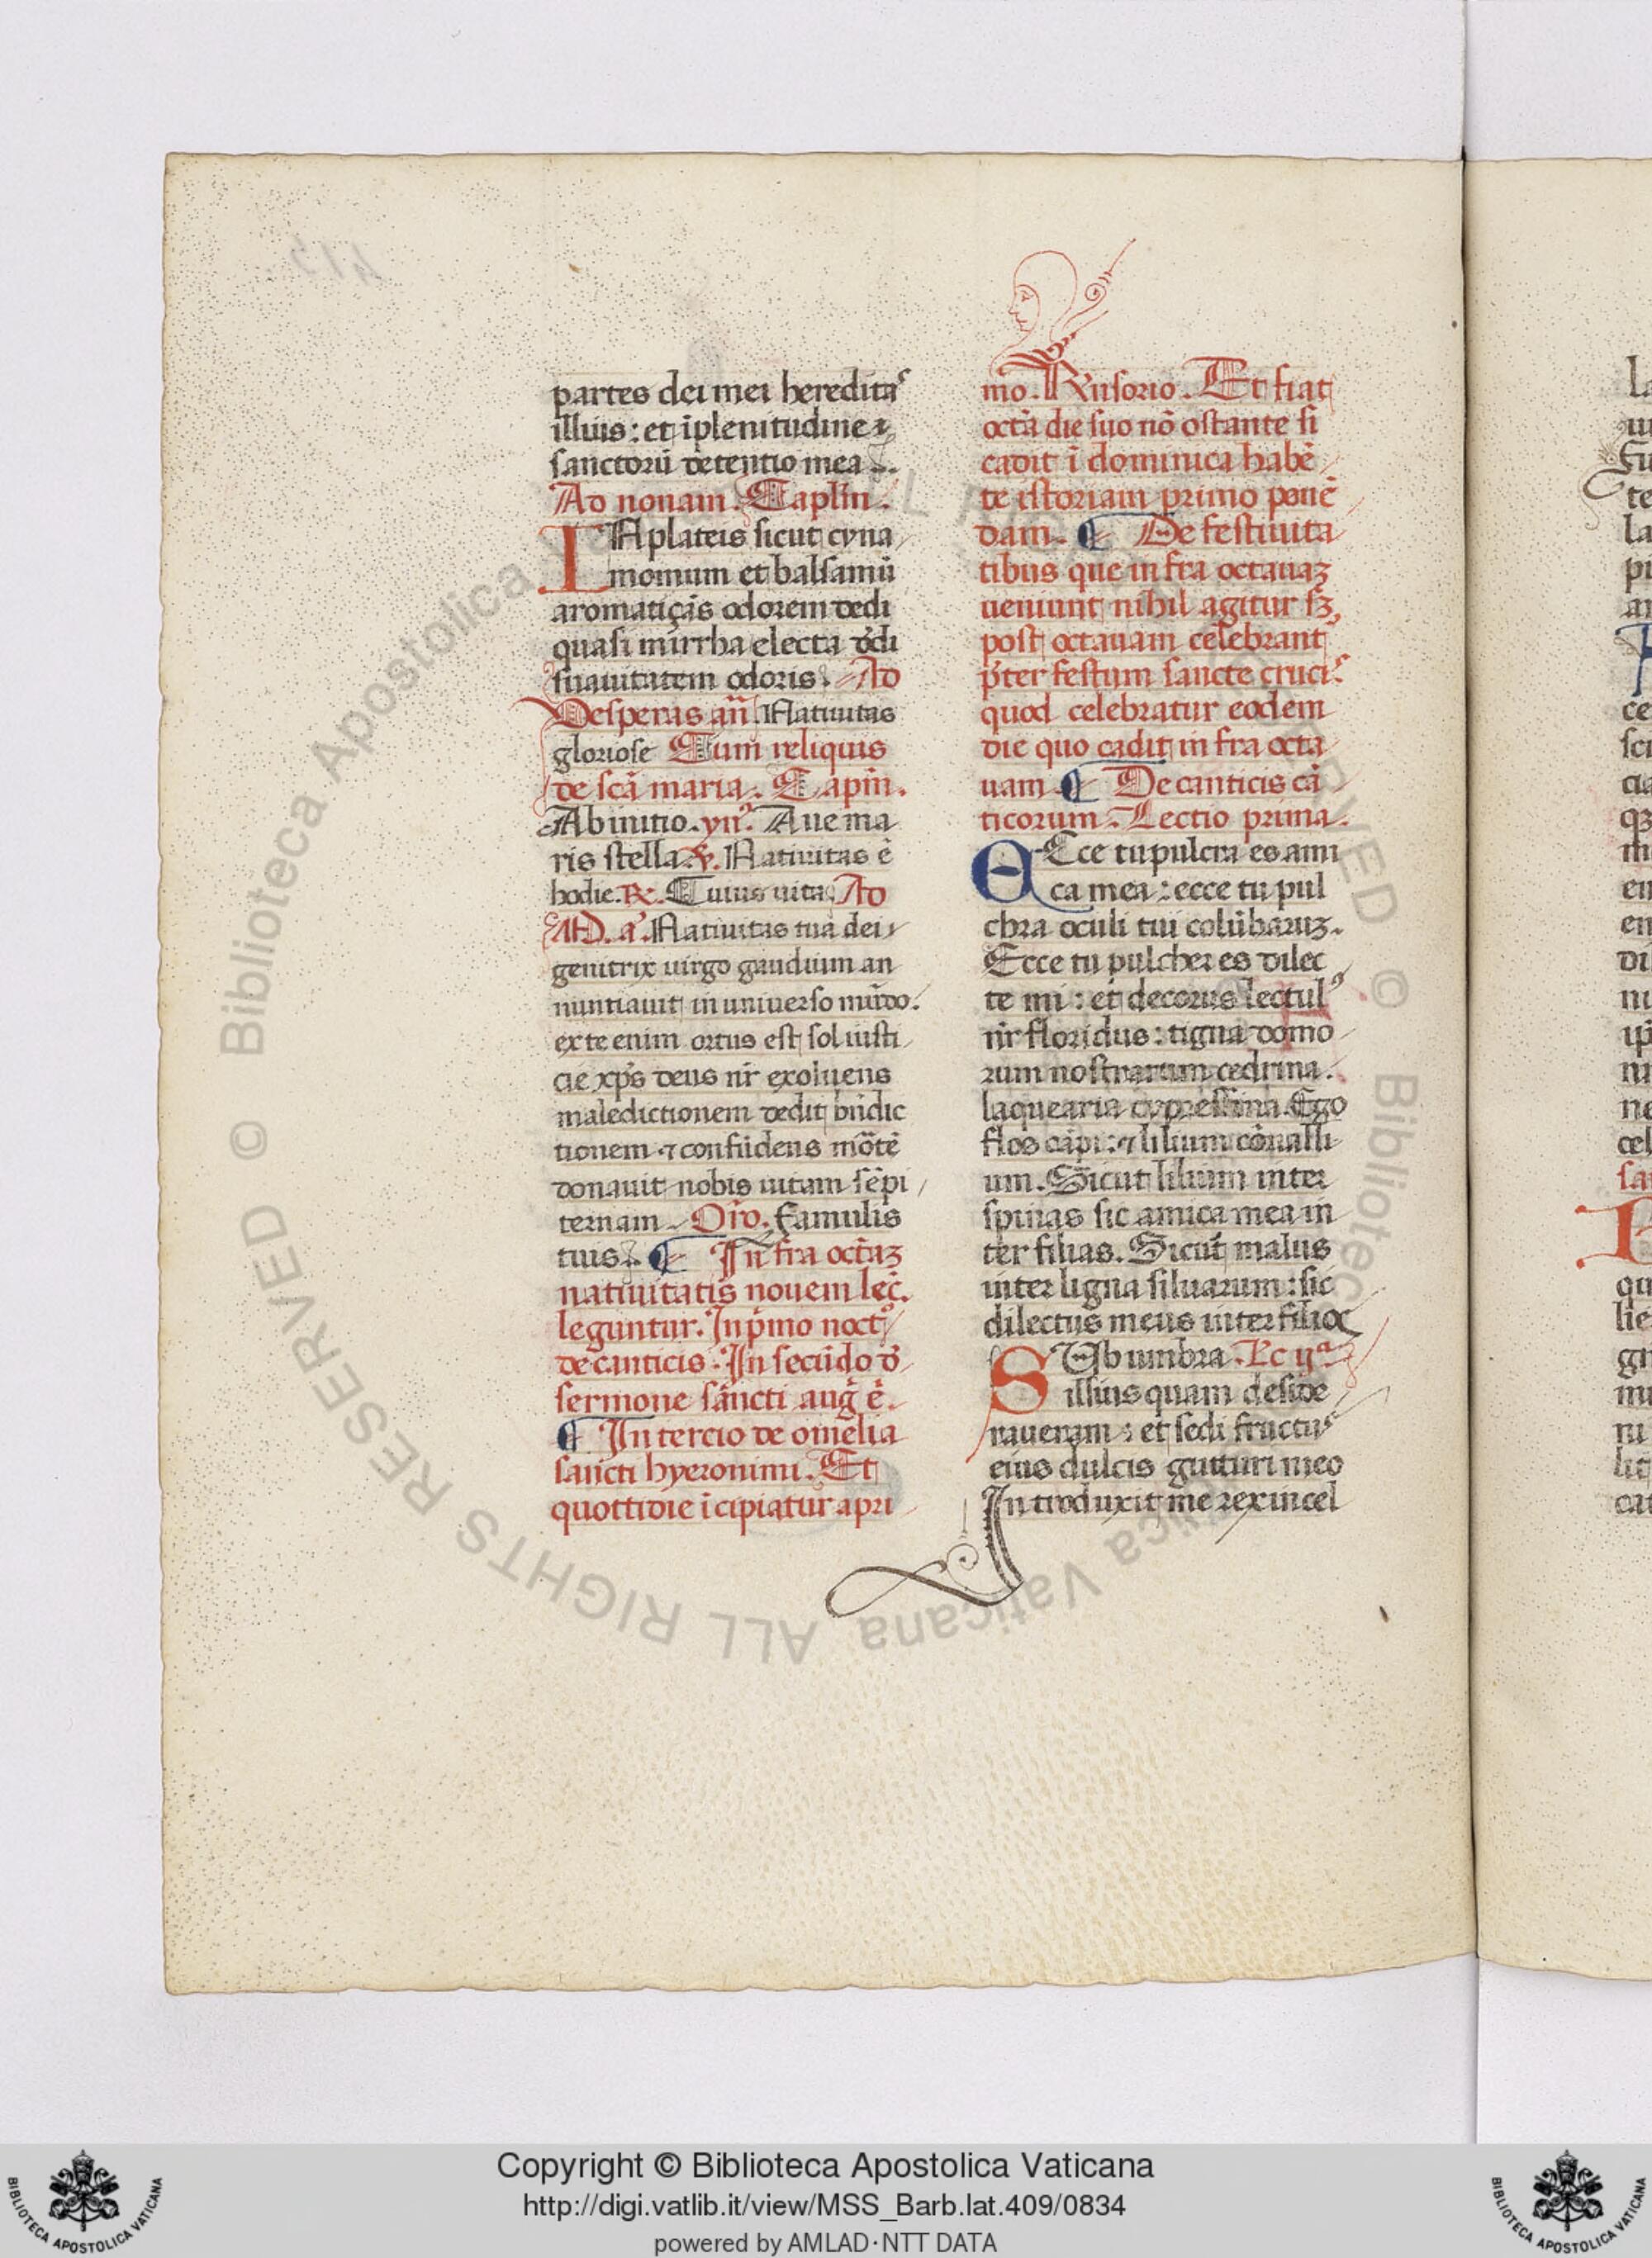 partes dei mei heredita⁹
illius: et īplenitudine
sanctorū detentio mea.
Ad nonam. Caplm̄.
INplateis sicut cyna
momum et balsamū
aromatiçās odorem dedi
quasi mirrha electa ddi
suauitatem odoris. Ad
Vesperas an̄. Natiuitas
gloriose Cum reliquis
de scā maria. Capm̄.
Abinitio. ym̄. Aue ma
ris stella. ℣. Natiuitas ē
hodie. ℟. Cuius uita. Ad
M. a. Natiuitas tua dei
genitrix uirgo gaudium an
nuntiauit in uniuerso mūdo.
exte enim ortus est sol iusti
cie xp̄s deus nr̄ exoluens
maledictionem dedit bn̄dic
tionem ⁊ confūdens mōtē
donauit nobis uitam sēpi
ternam. Oro. Famulis
tuis. ¶ In fra octaꝫ
natiuitatis nouem lec̄.
leguntur. In pͥmo noct⁹
de canticis. In secūdo d̄
sermone sancti aug̃ ē.
¶ In tercio de omelia
sancti hyeronimi. Et
quottidie īcipiatur apri
mo. Rusorio. Et fiat
octā die suo nō ostante si
cadit ī dominica habē
te istoriam primo ponē
dam. ¶ De festiuita
tibus que in fra octauaꝫ
ueniunt nihil agitur sꝫ
post octauam celebrant
p̄ter festum sancte cruci⁹
quod celebratur eodem
die quo cadit in fra octa
uam ¶ De canticis cā
ticorum. Lectio prima.
ECce tu pulcra es ami
ca mea: ecce tu pul
chra oculi tui colūbaruꝫ.
Ecce tu pulcher es dilec
te mi: et decorus lectul⁹
nr̄ floridus: tigna domo
rum nostrarum cedrina.
laquearia cypressina. Ego
flos cāpi: ⁊ lilium cōualli
um. Sicut lilium inter
spinas sic amica mea in
ter filias. Sicut malus
inter ligna siluarum: sic
dilectus meus inter filios
SUb umbra. Lc ijᵃ
illius quam deside
raueram: et sedi fructu⁹
eius dulcis gutturi meo
Introduxit me rex in cel
Copyright © Biblioteca Apostolica Vaticana
http://digi.vatlib.it/view/MSS_Barb.lat.409/0834
powered by AMLAD·NTT DATA
BIBLIOTECA APOSTOLICA VATICANA
BIBLIOTECA APOSTOLICA VATICANA